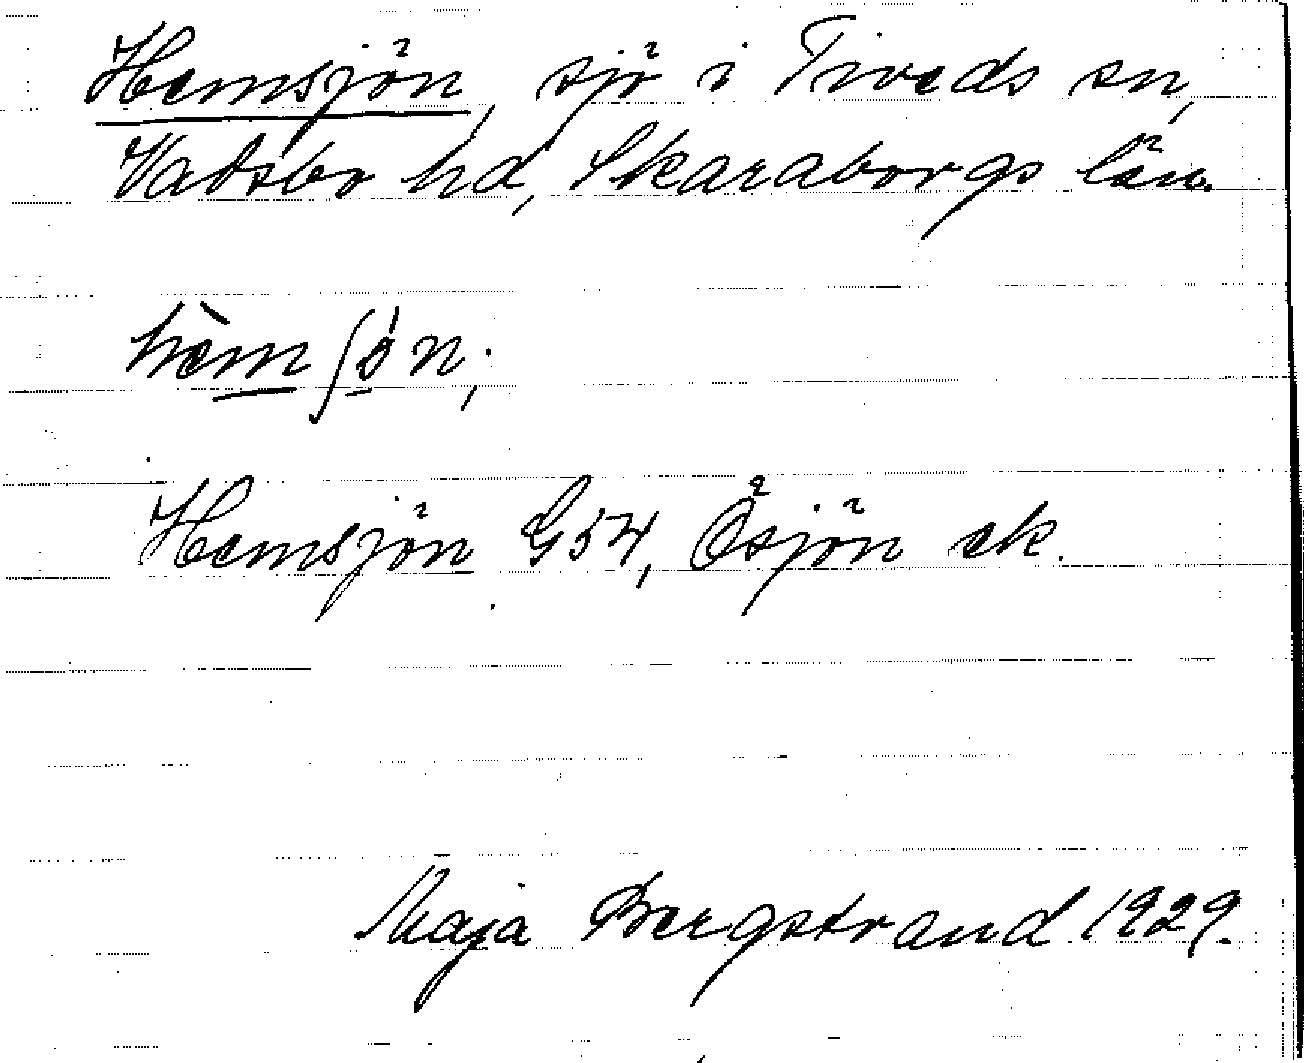 Hemsjön, sjö i Tiveds sn,
Vadsbo hd, Skaraborgs län.
hèmʃö́n;
Hemsjön G54, Ösjön ek.
Maja Bergstrand 1929.